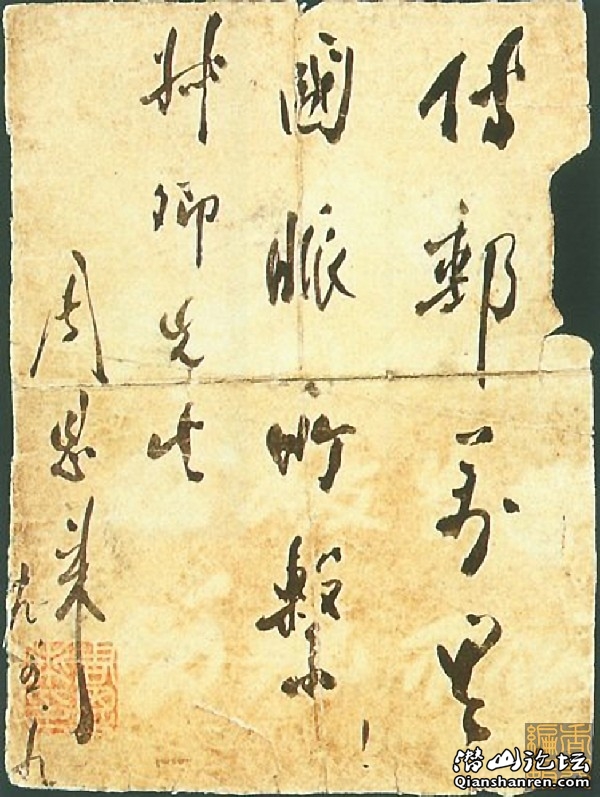 傳郵萬里
國脈所繫！
卿先生
周恩來
五·九
潜山论坛
Qianshanren.com